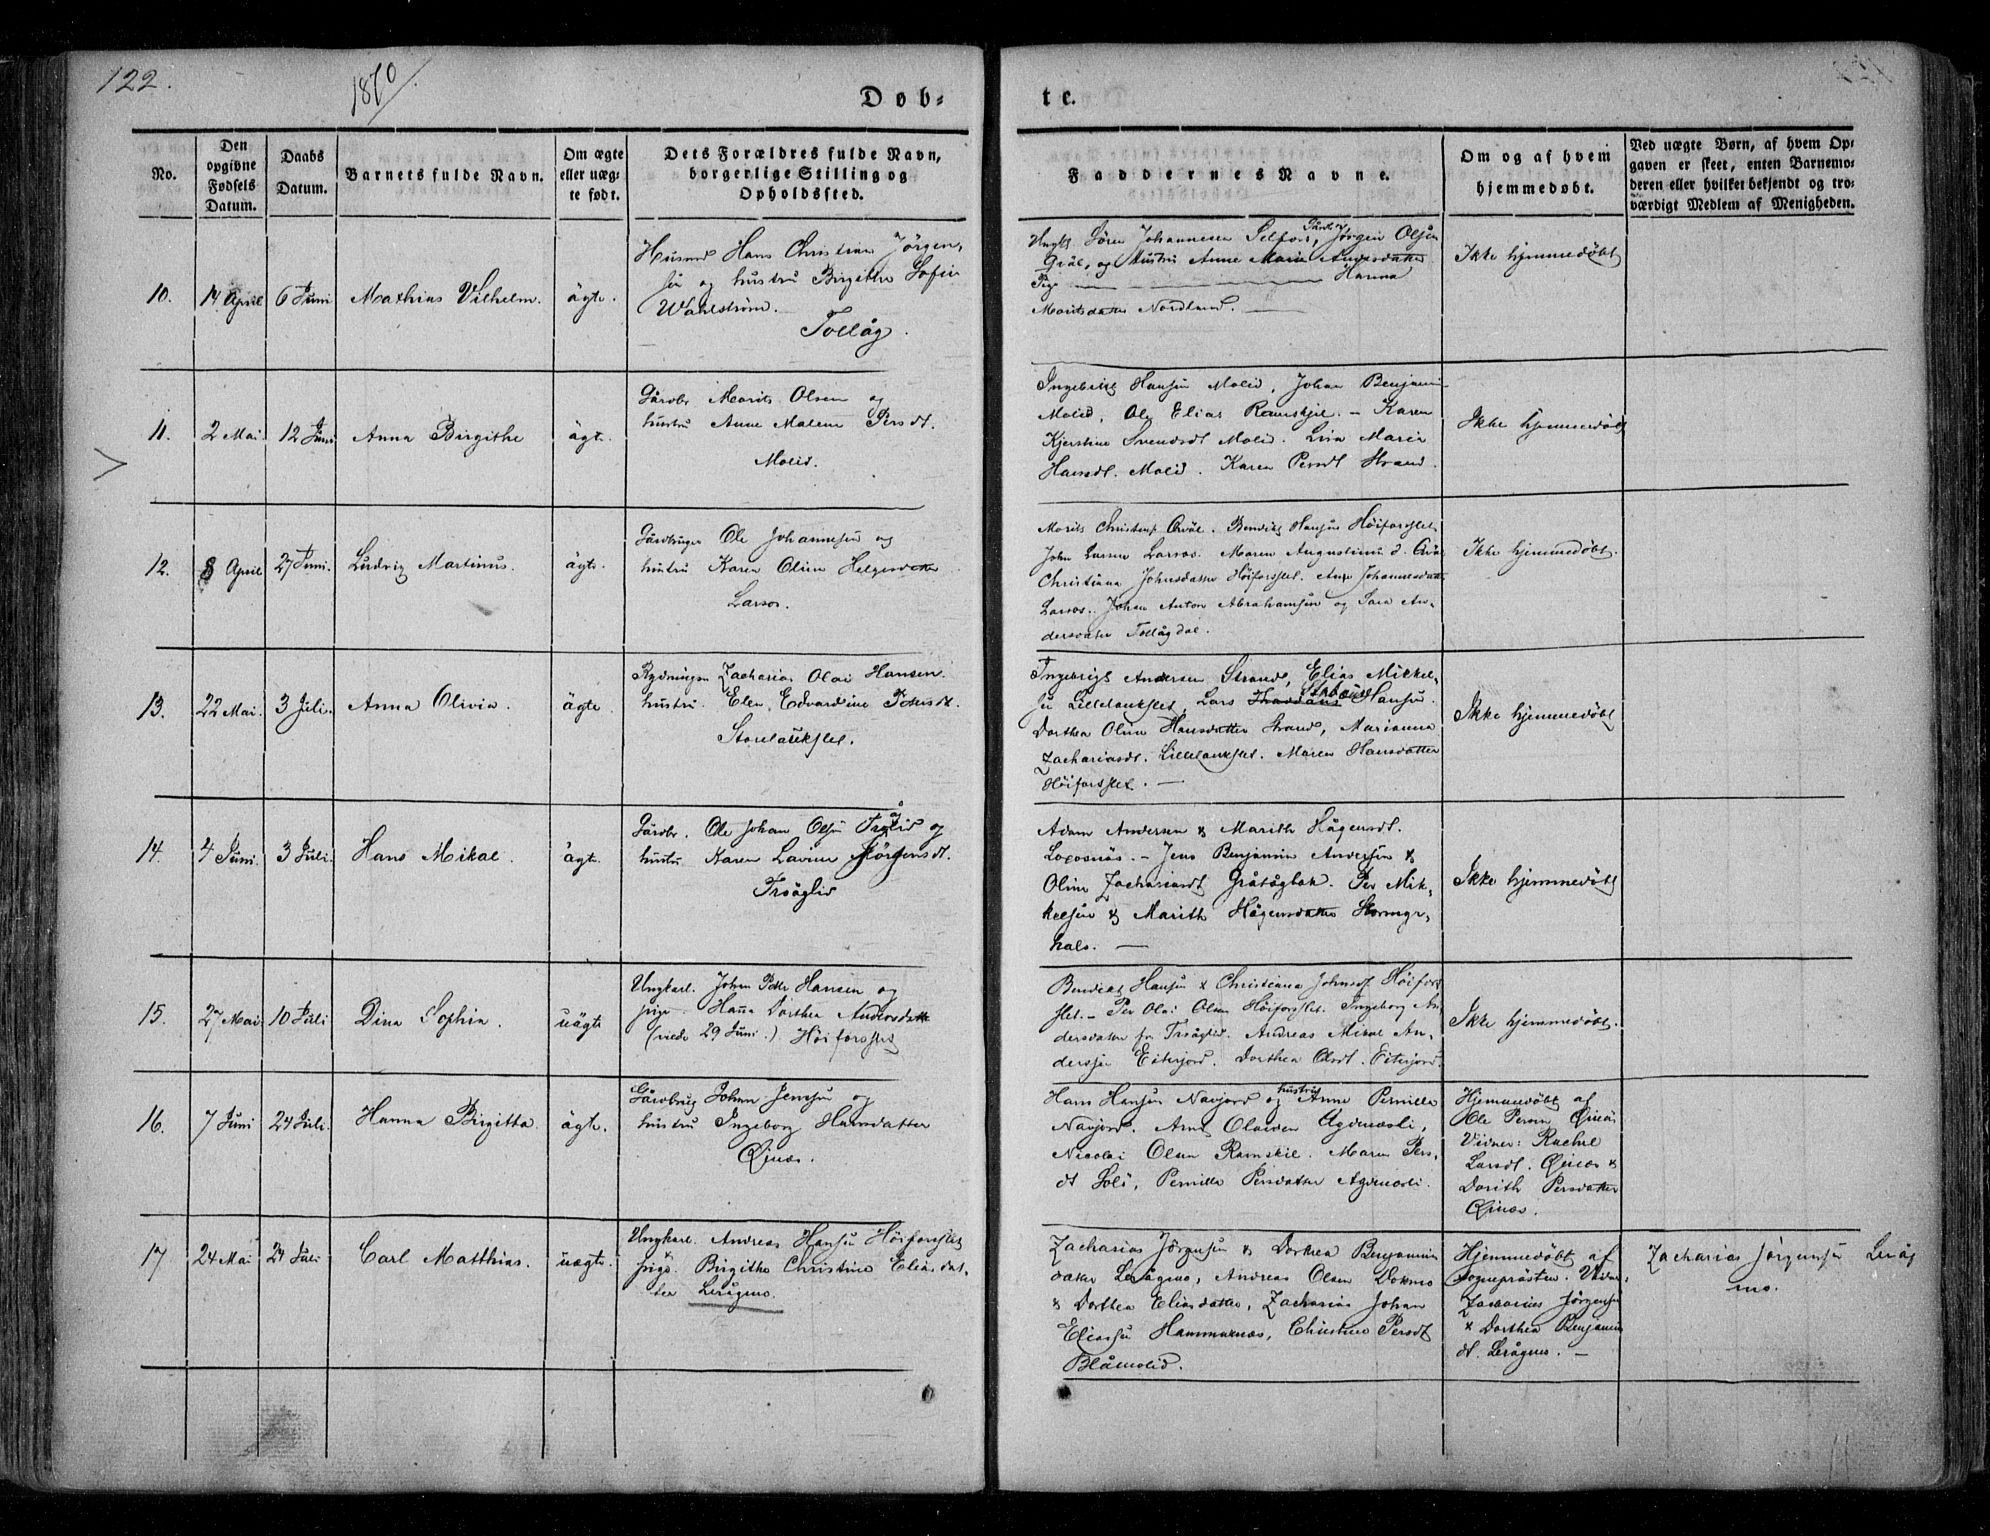 122.
1870.
Døb-
te.
No.
Den
opgivne
Fødsels
Datum.
Daabs
Datum.
Barnets fulde Navn.
Om ægte
eller uæg-
te født.
Dets Forældres fulde Navn,
borgerlige Stilling og
Opholdssted.
Faddernes Navne.
Om og af hvem
hjemmedøbt.
Ved uægte Børn, af hvem Op-
gaven er skeet, enten Barnemo-
deren eller hvilket bekjendt og tro-
værdigt Medlem af Menigheden.
10.
14 April
6 Juni
Mathias Vilhelm.
ägte.
Husmd Hans Christian Jörgen-
sen og hustru Birgitte Sofie
Wahlström.
Tollåg.
Ungk. Sören Johannesen Selfors, Jörgen Olsen
og Hustru Anne Marie Andersdatter
Pige Hanna
Moritsdatter Nordlund.
Ikke hjemmedöbt
11.
2 Mai.
12 Juni
Anna Birgithe
ägte.
Gårdbr Morits Olsen og
hustru Anne Malene Persdt.
Molid.
Ingebrigt Hansen Molid, Johan Benjamin
Molid, Ole Elias Ramskjel. - Karen
Kjerstine Svendsdt Molid. Lina Maria
Hansdt. Molid. Karen Persdt Strand.
Ikke hjemmedöbt
12.
8 April
27 Juni.
Ludvig Martinus.
ägte.
Gårdbruger Ole Johannesen og
hustru Karen Oline Helgesdatter
Larsos.
Morits Christens. Bendikt Hansen Höiforsslet.
John Larsen Larsos. Maren Augustinus d.
Christiana Johnsdatter Höiforsslet. Ane Johannesdatter
Larsos. Johan Anton Abrahamsen og Sara An-
dersdatter Tollågdal.
Ikke hjemmedöbt.
13.
22 Mai.
3 Juli.
Anna Olivia
ägte.
Rydningsm Zacharias Olai Hansen.
hustru. Elen Edvardine Petersdt.
Storelankslet.
Ingebrigt Andersen Strand, Elias Mikkel-
sen Lillelankslet, Lars Hansen.
Dorthea Oline Hansdatter Strand, Marianna
Zachariasdt. Lillelankslet. Maren Hansdatter
Höiforsslet. -
Ikke hjemmedöbt
14.
4 Juni.
3 Juli.
Hans Mikal.
ägte.
Gårdbr. Ole Johan Olsen Tråglid og
hustru Karen Lavine Jörgensdt.
Tråglid
Adam Andersen & Marith Hågensdt.
Laxosnäs. - Jens Benjamin Andersen &
Oline Zachariasdt Gråtågbak. Per Mik-
kelsen & Marith Hågensdatter Stormyr-
hals. -
Ikke hjemmedöbt
15.
27 Mai.
10 Juli
Dina Sophia.
uägte
Ungkarl. Johan Peter Hansen og
pige. Hanna Dorthea Andersdatter
(viede 29 Juni.) Höiforsslet
Bendikt Hansen & Christiana Johnsdt Höifors-
slet. - Per Olai Olsen Höiforsslet. Ingeborg An-
dersdatter fr Tråglid. Andreas Mikal An-
dersen Eiterjord. Dorthea Olsdt. Eiterjord.
Ikke hjemmedöbt.
16.
7 Juni
24 Juli.
Hanna Birgitta.
ägte.
Gårdbrug Johan Jensen og
hustru Ingeborg Hansdatter
Qinäs.
Hans Hansen Navjord og hustru Anne Pernille
Navjord. Arnt Olaisen Agdenäsli,
Nicolai Olsen Ramskil. Maren Pers-
dt Soli, Pernille Persdatter Agdenäsli.
Hjemmedöbt af
Ole Persen Qinäs
Vidner: Rachel
Larsdt. Qinäs &
Dorith Persdatter
Qinäs.
17.
24 Mai
24 Juli
Carl Matthias.
uägte.
Ungkarl. Andreas Hansen Höiforsslet
& pige. Birgithe Christine Eliasdat-
ter Leirågmo.
Zacharias Jörgensen & Dorthea Benjamins-
datter Leirågmo, Andreas Olsen Dokmo
& Dorthea Eliasdatter, Zacharias Johan
Eliassen Hammernäs, Christine Persdt
Blåmolid.
Hjemmedöbt af
Sogneprästen. Vidner.
Zacharias Jörgensen
& Dorthea Benjamins
dt. Leirågmo. -
Zacharias Jörgensen Leiråg
mo.